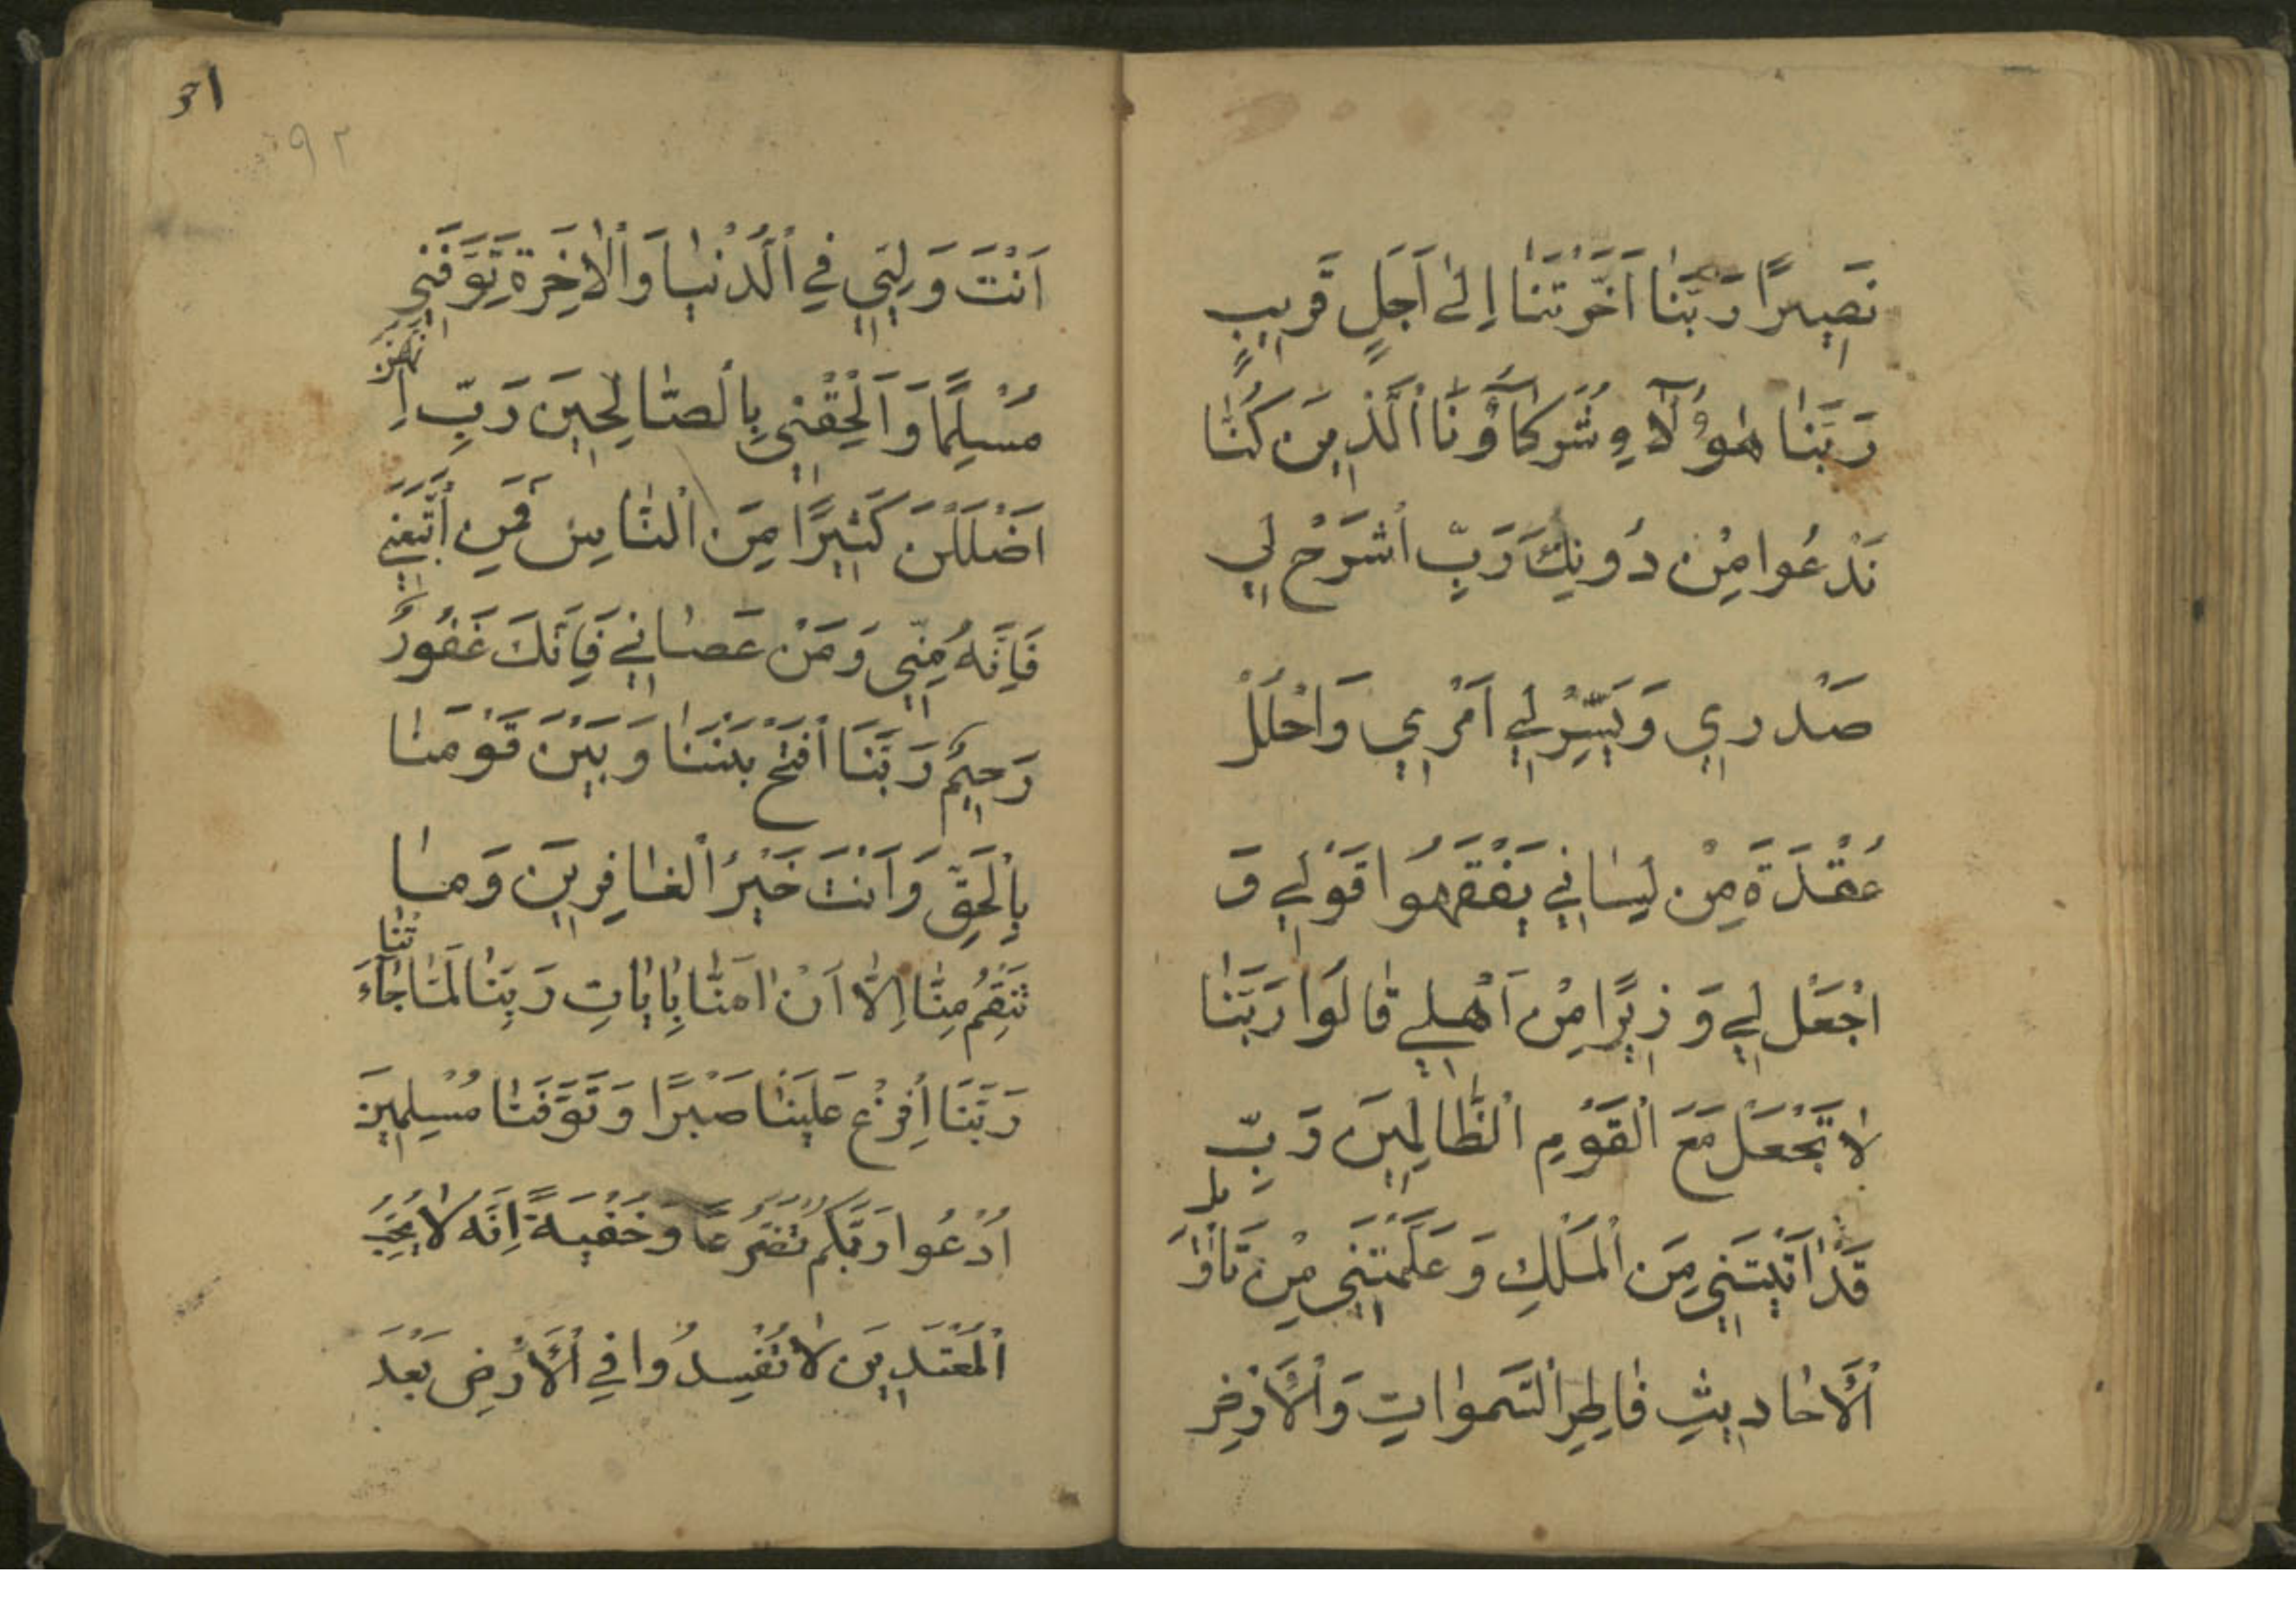 نَصِيرًا رَبَّنَا اَخَّرْتَنَا اِلىٰ اَجَلٍ قَرِيبٍ
رَبَّنَا هٰؤُلَآءِ شُرَكَآؤُنَا الَّذِينَ كُنَّا
نَدْعُوا مِنْ دُونِكَ رَبِّ اشْرَحْ لِي
صَدْرِي وَيَسِّرْ لِي اَمْرِي وَاحْلُلْ
عُقْدَةً مِنْ لِسَانِي يَفْقَهُوا قَوْلِي وَ
اجْعَلْ لِي وَزِيرًا مِنْ اَهْلِي قَالُوا رَبَّنَا
لَا تَجْعَلْ مَعَ الْقَوْمِ الظَّالِمِينَ رَبِّ
قَدْ اٰتَيْتَنِي مِنَ الْمُلْكِ وَعَلَّمْتَنِي مِنْ تَاْوِيلِ
الْاَحَادِيثِ فَاطِرَ السَّمٰوَاتِ وَالْاَرْضِ
31
٩٢
اَنْتَ وَلِيِّي فِي الدُّنْيَا وَالْاٰخِرَةِ تَوَفَّنِي
مُسْلِمًا وَاَلْحِقْنِي بِالصَّالِحِينَ رَبِّ اِنَّهُنَّ
اَضْلَلْنَ كَثِيرًا مِنَ النَّاسِ فَمَنِ اتَّبَعَنِي
فَاِنَّهُ مِنِّي وَمَنْ عَصَانِي فَاِنَّكَ غَفُورٌ
رَحِيمٌ رَبَّنَا افْتَحْ بَيْنَنَا وَبَيْنَ قَوْمِنَا
بِالْحَقِّ وَاَنْتَ خَيْرُ الْغَافِرِينَ وَمَا
تَنْقِمُ مِنَّا اِلَّا اَنْ اٰمَنَّا بِاٰيَاتِ رَبِّنَا لَمَّا جَآءَتْنَا
رَبَّنَا اَفْرِغْ عَلَيْنَا صَبْرًا وَتَوَفَّنَا مُسْلِمِينَ
اُدْعُوا رَبَّكُمْ تَضَرُّعًا وَخُفْيَةً اِنَّهُ لَا يُحِبُّ
الْمُعْتَدِينَ لَا تُفْسِدُوا فِي الْاَرْضِ بَعْدَ